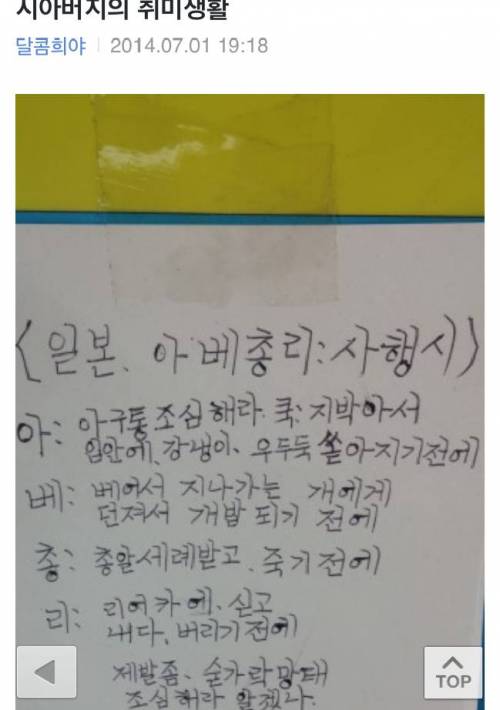 시아버지의 취미생활
달콤희야 2014.07.01 19:18
〈일본. 아베총리:사행시〉
아: 아구통조심해라. 콕: 지박아서
입안에. 강냉이. 우두둑 쏟아지기전에
베: 베어서 지나가는 개에게
던져서 개밥 되기 전에
총: 총알세례받고. 죽기전에
리: 리어카에. 싣고
내다. 버리기전에
제발좀. 숟가락망태
조심해라 알겠나.
TOP